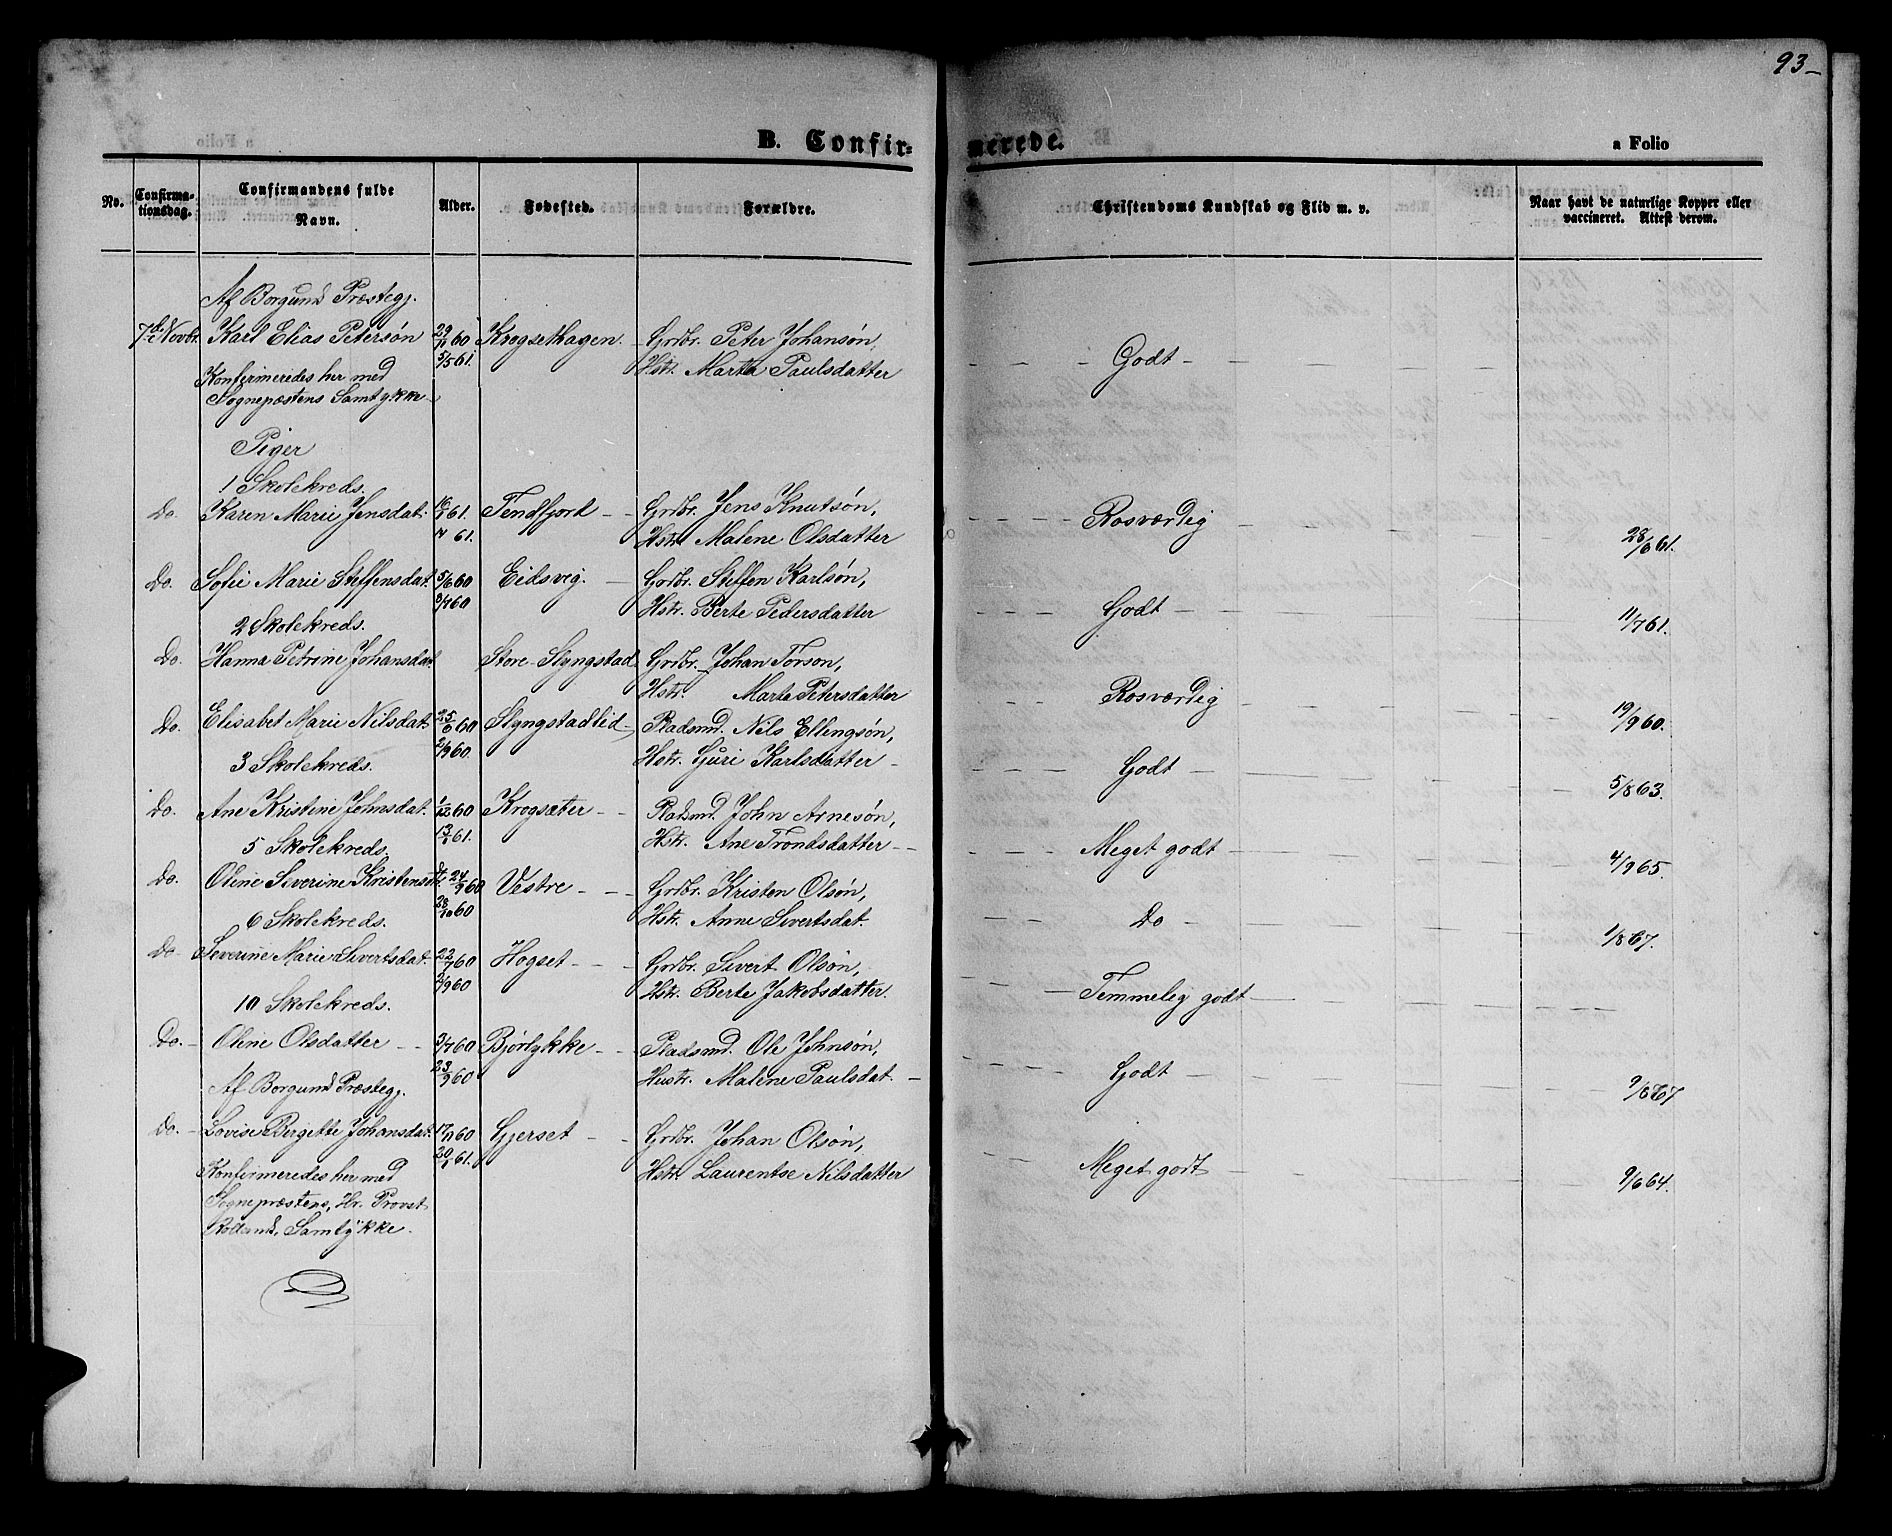 93-
B. Confirmerede.
a Folio
No.
Confirma-
tionsdag.
Confirmandens fulde
Navn.
Alder.
Fødested.
Forældre.
Christendoms Kundskab og Flid m. v.
Naar havt de naturlige Kopper eller
vaccineret. Attest derom.
Af Borgund Præstegj.
7de Novbr. Karl Elias Petersøn 29/11 60 Krogsethagen. Grdbr. Peter Johansøn, Godt
5/5 61. Hstr. Marta Paulsdatter
Konfirmeredes her med
Sognepæstens Samtykke
Piger
1 Skolekreds.
Do. Karen Marie Jensdat. 61. Tendfjord Grdbr. Jens Knutsøn, Rosværdig 28/6 61.
61. Hstr. Malene Olsdatter
Do. Sofie Marie Steffensdat. 5/6 60 Eidsvig. Grdbr. Steffen Karlsøn, Godt 11/7 61.
8/7 60 Hstr. Berte Pedersdatter
2 Skolekreds.
Do. Hanna Petrine Johansdat Store Slyngstad Grdbr. Johan Torson, Rosværdig 19/9 60.
Hstr. Marta Petersdatter
Do. Elisabet Marie Nilsdat. 25/6 60 Slyngstadlid Pladsmd. Nils Ellengsøn, Godt 5/8 63.
2/9 60. Hstr. Guri Karlsdatter
3 Skolekreds.
Do. Ane Kristine Johnsdat. 1/12 60 Krogsæter Pladsmd. John Arnesøn, Meget godt 4/9 65.
61. Hstr. Ane Trondsdatter
5 Skolekreds.
Do. Oline Severine Kristensdt. 24/9 60 Vestre Grdbr. Kristen Olsøn, Do 1/8 67.
28/10 60 Hstr. Anne Sivertsdat.
6 Skolekreds.
Do Severine Marie Sivertsdat. 22/7 60 Hogset Grdbr. Sivert Olsøn, Temmelig godt
2/9 60 Hstr. Berte Jakobsdatter.
10 Skolekreds.
Do. Oline Olsdatter 3/7 60 Bjørlykke Pladsmd. Ole Johnsøn, Godt 9/6 67
23/9 60 Hustr. Malene Paulsdat.
Af Borgund Præstegj.
Do. Lovise Bergette Johansdat. 17/11 60 Gjerset Grdbr. Johan Olsøn, Meget godt 9/6 64.
20/1 61. Hstr. Laurentse Nilsdatter
Konfirmeredes her med
Sognepræstens, Hr. Provst
Samtykke.